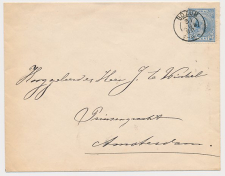 Hooggeleerden Heer J. te Winkel
Prinsengracht
Amsterdam.